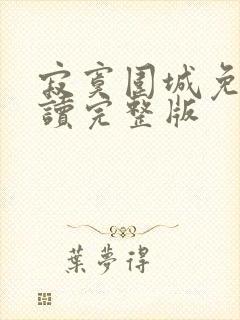 寂寞围城免
讀完整版
葉夢得